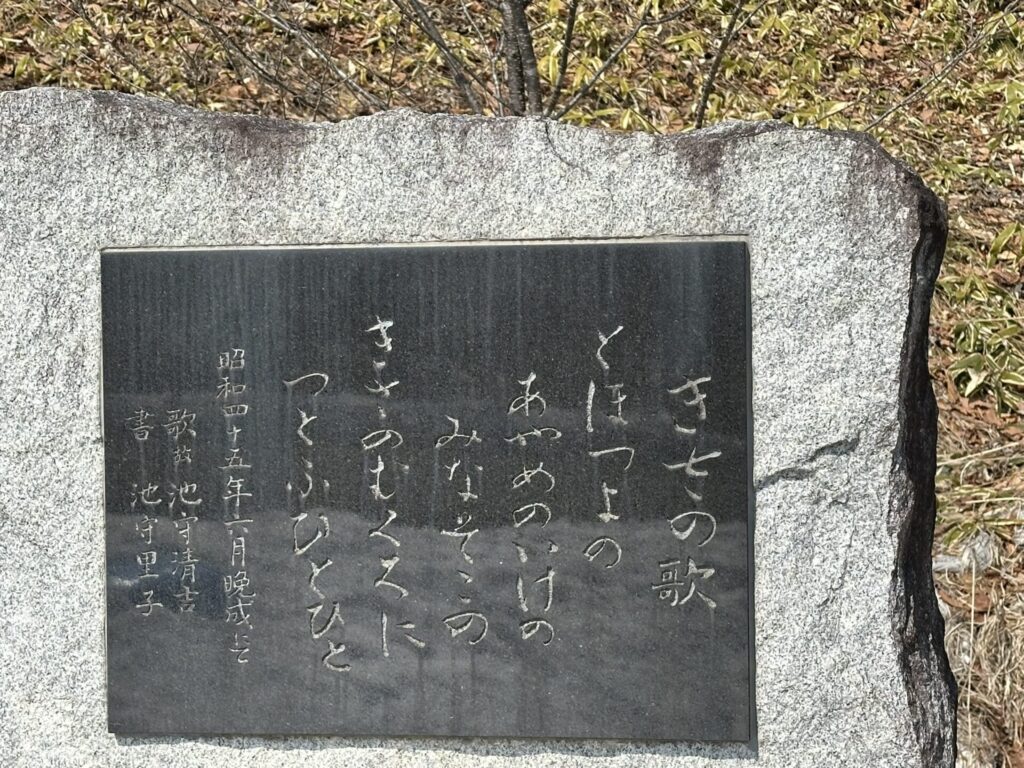 きさの歌
とほつよの
あやめのいけの
みなそこの
きさのむくろに
つとふひとひと
昭和四十五年六月晩成にて
歌 故 池守清吉
書 池守里子